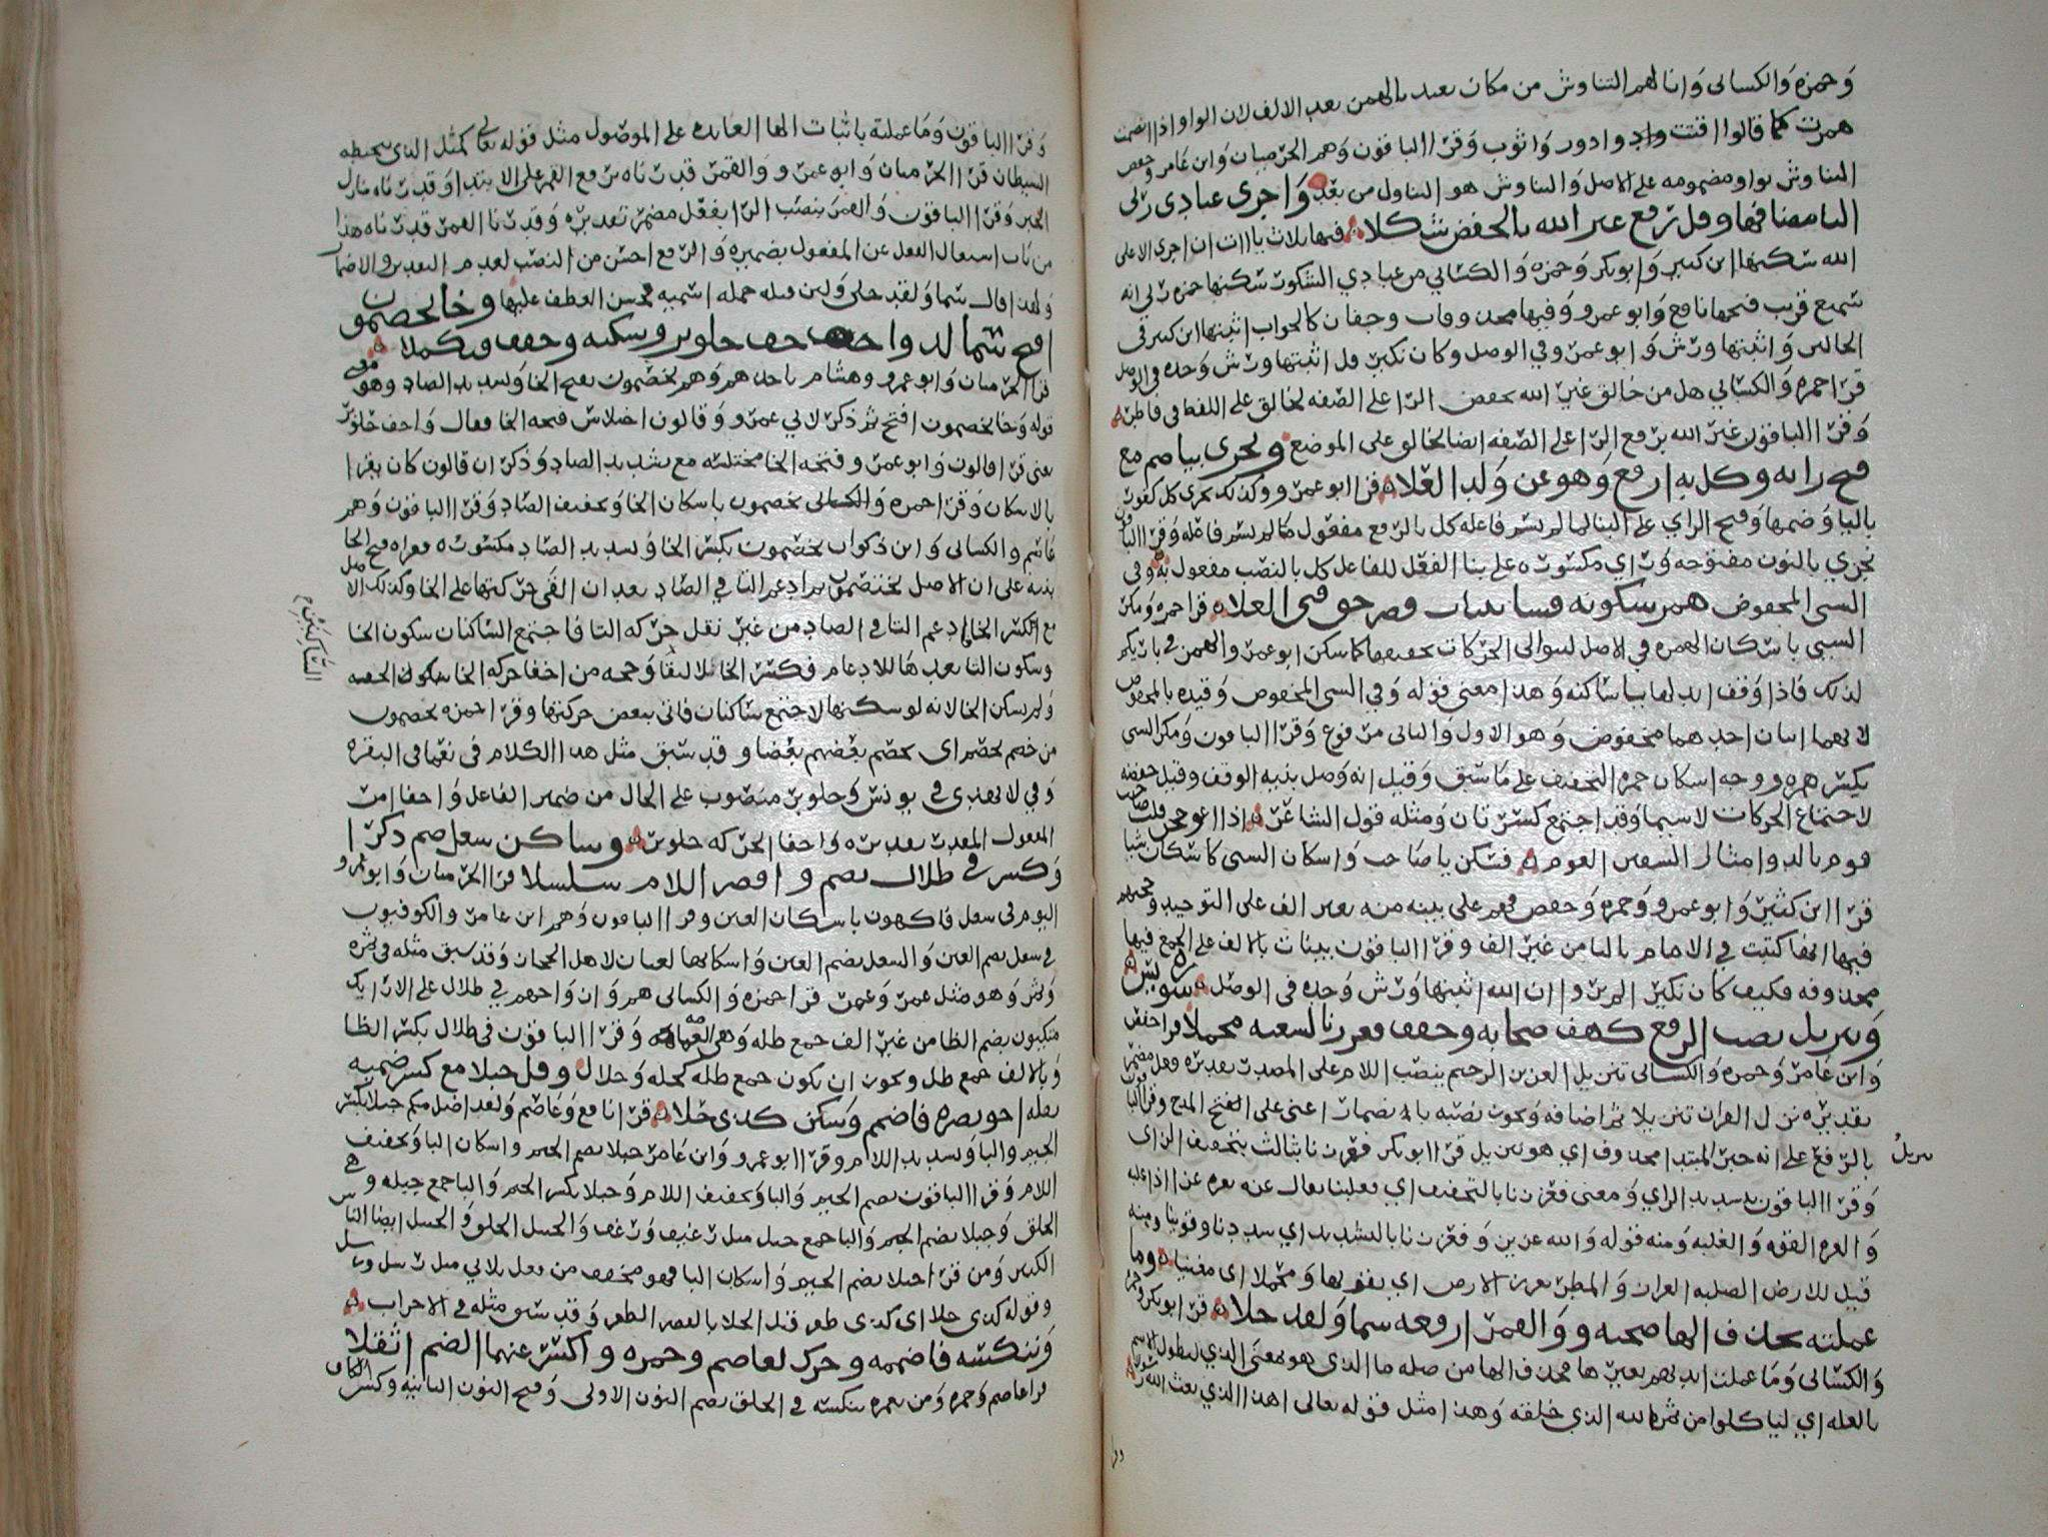 وحمزه والكسائى وانا لهم التناوش من مكان بعيد بالهمز بعد الالف لان الواو اذا انضمت
همزت كما قالوا اقتت وادوور واثوب وقرا الباقون وهم الحرميان وابن عامر وحفص
التناوش بواو مضمومه على الاصل والتناوش هو التناول من بعد واجرى عبادى ربى
اليا مضافها وقل رفع غير الله بالخفض شكلا فيها ثلاث ياات ان اجرى الا على
الله سكنها ابن كثير وابو بكر وحمزه والكسائي من عبادي الشكور سكنها حمزه ربي انه
سميع قريب فتحها نافع وابو عمرو وفيها محذوفات وجفان كالجواب اثبتها ابن كثير في
الحالين واثبتها ورش وابو عمرو في الوصل وكان نكير قل اثبتها ورش وحده في الوصل
قرا حمزه والكسائي هل من خالق غير الله بخفض الرا على الصفه لخالق على اللفظ في فاطر
وقرا الباقون غير الله برفع الرا على الصفه ايضا لخالق على الموضع ونجزى بيا ضم مع
فتح زايه وكل به ارفع وهو عن ولد العلا قرا ابو عمرو وكذلك يجزى كل كفور
باليا وضمها وفتح الزاي على البنا لما لم يسم فاعله كل بالرفع مفعول ما لم يسم فاعله وقرا الباقون
نجزي بالنون مفتوحه وزاي مكسوره على بنا الفعل للفاعل كل بالنصب مفعول به وفي
السيئ المخفوض همز سكونه فشا بينات قصر حق فتى العلا قرا حمزه ومكر
السيئ باسكان الهمزه في الاصل لتوالى الحركات تخفيفا كما سكن ابو عمرو الهمز في باريكم
لذلك فاذا وقف ابدلها يا ساكنه وهذا معنى قوله وفي السيئ المخفوض وقيده بالمخفوض
لانهما اثنان احدهما مخفوض وهو الاول والثانى مرفوع وقرا الباقون ومكر السيئ
بكسر همزه ووجه اسكان حمزه التخفيف على ما سبق وقيل انه وصل بنية الوقف وقيل خففه
لاجتماع الحركات لا سيما وقد اجتمع كسرتان ومثله قول الشاعر اذا اعوججن قلت صاحب
قوم بالدو امثال السفين العوم فسكن يا صاحب واسكان السيئ كاسكان سبا
قرا ابن كثير وابو عمرو وحمزه وحفص فهم على بينه منه بغير الف على التوحيد وحجتهم
فيها انها كتبت في الامام بالتا من غير الف وقرا الباقون بينات بالالف على الجمع فيها
محذوفه فكيف كان نكير الم تر ان الله اثبتها ورش وحده في الوصل سورة يس
وتنزيل نصب الرفع كهف صحابه وخفف فعززنا لشعبه محملا قرا حفص
وابن عامر وحمزه والكسائى تنزيل العزيز الرحيم بنصب اللام على المصدر تقديره وفعل مضمر
تقديره نزل القران تنزيلا ثم اضافه ويجوز نصبه باضمار اعنى على المدح وقرا الباقون
تنزيل
بالرفع على انه خبر المبتدا محذوف اي هو تنزيل قرا ابو بكر فعززنا بثالث بتخفيف الزاى
وقرا الباقون بتشديد الزاي ومعنى فعززنا بالتخفيف اي فغلبنا يقال عزه يعزه عزا اذا غلبه
والعزه القوه والغلبه ومنه قوله والله عزيز وفعززنا بالتشديد اي شددنا وقوينا ومنه
قيل للارض الصلبه العزاز والمطر يعزز الارض اي يقويها ومحملا اى معينا وما
عملته بحذف الها صحبه ووالقمر ارفعه سما ولقد حلا قرا ابو بكر وحمزه
والكسائى وما عملت ايديهم بغير ها فحذف الها من صله ما الذى هو بمعنى الذي لطول الاسم
بالصله اي لياكلوا من ثمره الله الذي خلقه وهذا مثل قوله تعالى اهذا الذي بعث الله رسولا
وقرا
وقرا الباقون وما عملته باثبات الها العايده على الموصول مثل قوله تعالى كمثل الذى يتخبطه
الشيطان قرا الحرميان وابو عمرو والقمر قدرناه برفع القمر على الابتدا وقدرناه منازل
الخبر وقرا الباقون والقمر بنصب الرا بفعل مضمر تقديره وقدرنا القمر قدرناه هذا
من باب اشتغال الفعل عن المفعول بضميره والرفع احسن من النصب لعدم التقدير والاضمار
ولهذا قال سما ولقد حلى ولان قبله جمله اسميه فحسن العطف عليها وخا يخصمون
افتح سما لذ واخف حلو بر وسكنه وخفف فتكملا
قرا الحرميان وابو عمرو وهشام تاخذهم وهم يخصمون بفتح الخا وتشديد الصاد وهو معنى
قوله وخا يخصمون افتح ثم ذكر لابي عمرو وقالون اختلاس فتحه الخا فقال واخف حلو بر
يعنى قرا قالون وابو عمرو فتحه الخا مختلسه مع تشديد الصاد وذكر ان قالون كان يقرا
بالاسكان وقرا حمزه يخصمون باسكان الخا وتخفيف الصاد وقرا الباقون وهم
عاصم والكسائى وابن ذكوان يخصمون بكسر الخا وتشديد الصاد مكسوره فقراه فتح الخا
بنيه على ان الاصل يختصمون ثم ادغم التا في الصاد بعد ان القى حركتها على الخا وكذلك الاصل
مع الكسر الخا ادغم التا في الصاد من غير نقل حركه التا فاجتمع الساكنان سكون الخا
وسكون التا بعدها للادغام فكسر الخا لالتقا وحجه من اخفا حركه الخا سكون الخفيه
الساكنين
ولم يسكن الخا لانه لو سكنها لاجتمع ساكنان فاتى ببعض حركتها وقرا حمزه يخصمون
من خصم يخصم اى يخصم بعضهم بعضا وقد سبق مثل هذا الكلام في نعما في البقره
وفي لا يهدى في يونس وحلو بر منصوب على الحال من ضمير الفاعل واخفا امر
المفعول المقدر تقديره واخفا الحركه حلو بر وساكن شغل ضم ذكرا
وكسر في ظلال بضم واقصر اللام سلسلا قرا الحرميان وابو عمرو
اليوم في شغل فاكهون باسكان الغين وقرا الباقون وهم ابن عامر والكوفيون
في شغل بضم الغين والشغل بضم الغين واسكانها لغتان لاهل الحجاز وقد سبق مثله في نشره
ونشر وهو مثل عمر وعمر قرا حمزه والكسائى هم وازواجهم في ظلال على الارايك
متكيون بضم الظا من غير الف جمع ظله وهي الغمامه وقرا الباقون في ظلال بكسر الظا
وبالالف جمع ظل ويجوز ان يكون جمع ظله كحله وحلال وقل جبلا مع كسر ضميه
ثقله اخو نصره فاضمم وسكن كذى حلا قرا نافع وعاصم ولقد اضل منكم جبلا بكسر
الجيم والبا وتشديد اللام وقرا ابو عمرو وابن عامر جبلا بضم الجيم واسكان البا وتخفيف
اللام وقرا الباقون بضم الجيم والبا وتخفيف اللام وجبلا بكسر الجيم والبا جمع جبله وهي
الخلق وجبلا بضم الجيم والبا جمع جبيل مثل رغيف ورغف والجبيل الخلق والجبل ايضا الناس
الكثير ومن قرا جبلا بضم الجيم واسكان البا فهو مخفف من فعل ثلاثي مثل رسل ورسل
وقوله كذى حلا اى كذى ظفر قيل الحلا بالقصر الظفر وقد سبق مثله في الاحزاب
وننكسه فاضممه وحرك لعاصم وحمزه واكسر عنهما الضم اثقلا
قرا عاصم وحمزه ومن نعمره ننكسه في الخلق بضم النون الاولى وفتح النون الثانيه وكسر الكاف